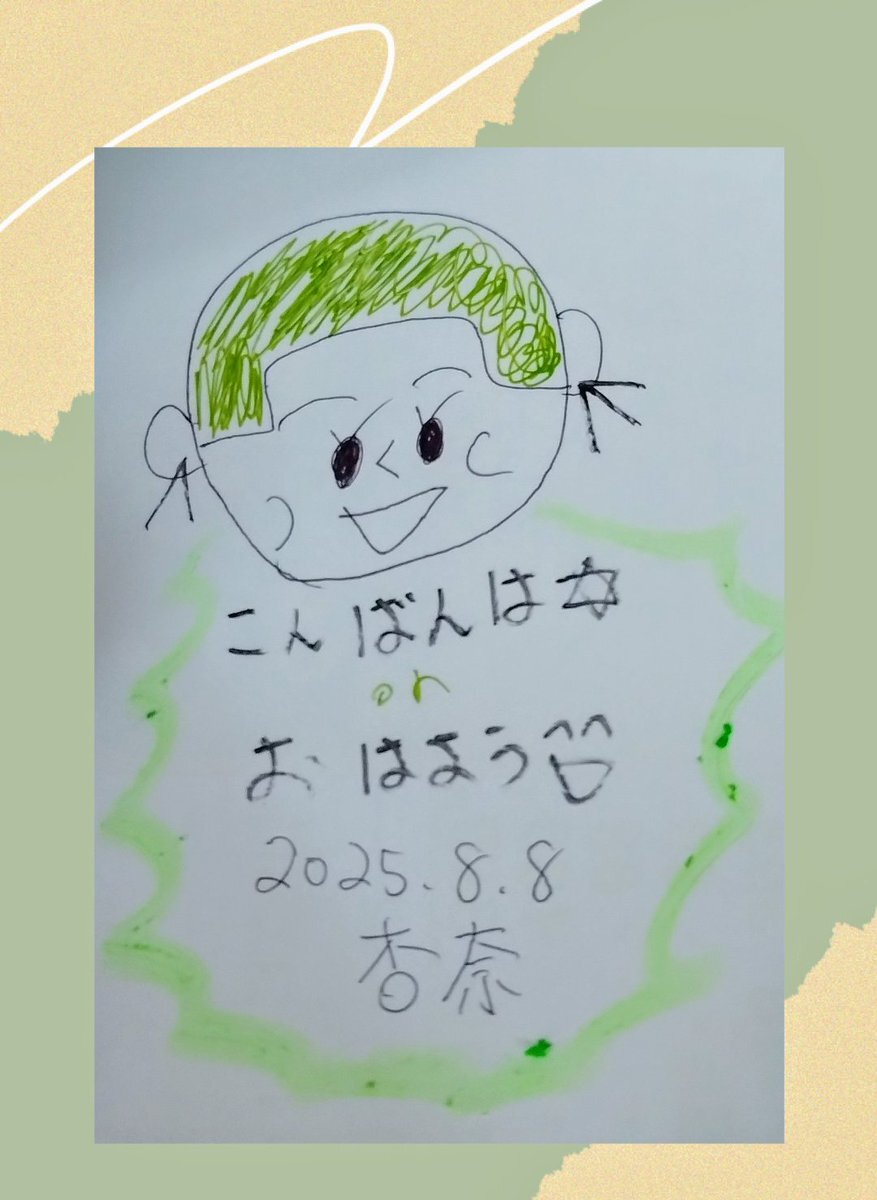 こんばんは☆
or
おはよう
2025.8.8
香奈